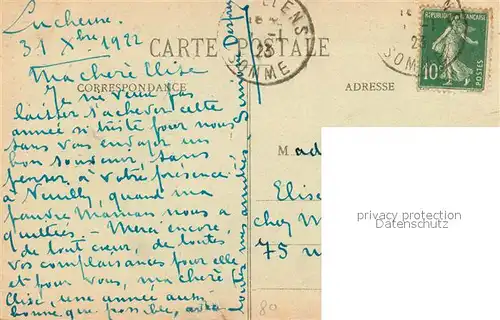 Lucheux.
31 Xbre 1922
CARTE POSTALE
Ma chère Elise
CORRESPONDANCE
ADRESSE
Je ne veux pas
laisser s'achever cette
année si triste pour nous
sans vous envoyer un
bon souvenir, sans
penser à votre présence
à Neuilly, quand ma
pauvre Maman nous a
quittés. - Merci encore,
de tout cœur, de toutes
vos complaisances pour elle
et pour vous, ma chère
Elise, une année aussi
bonne que possible, avec
toutes mes amitiés
LLENS
23
SOMME
RÉPUBLIQUE FRANÇAISE
10c
POSTES
M ad
Elise
chez M
75 r
privacy protection
Invaluable
80